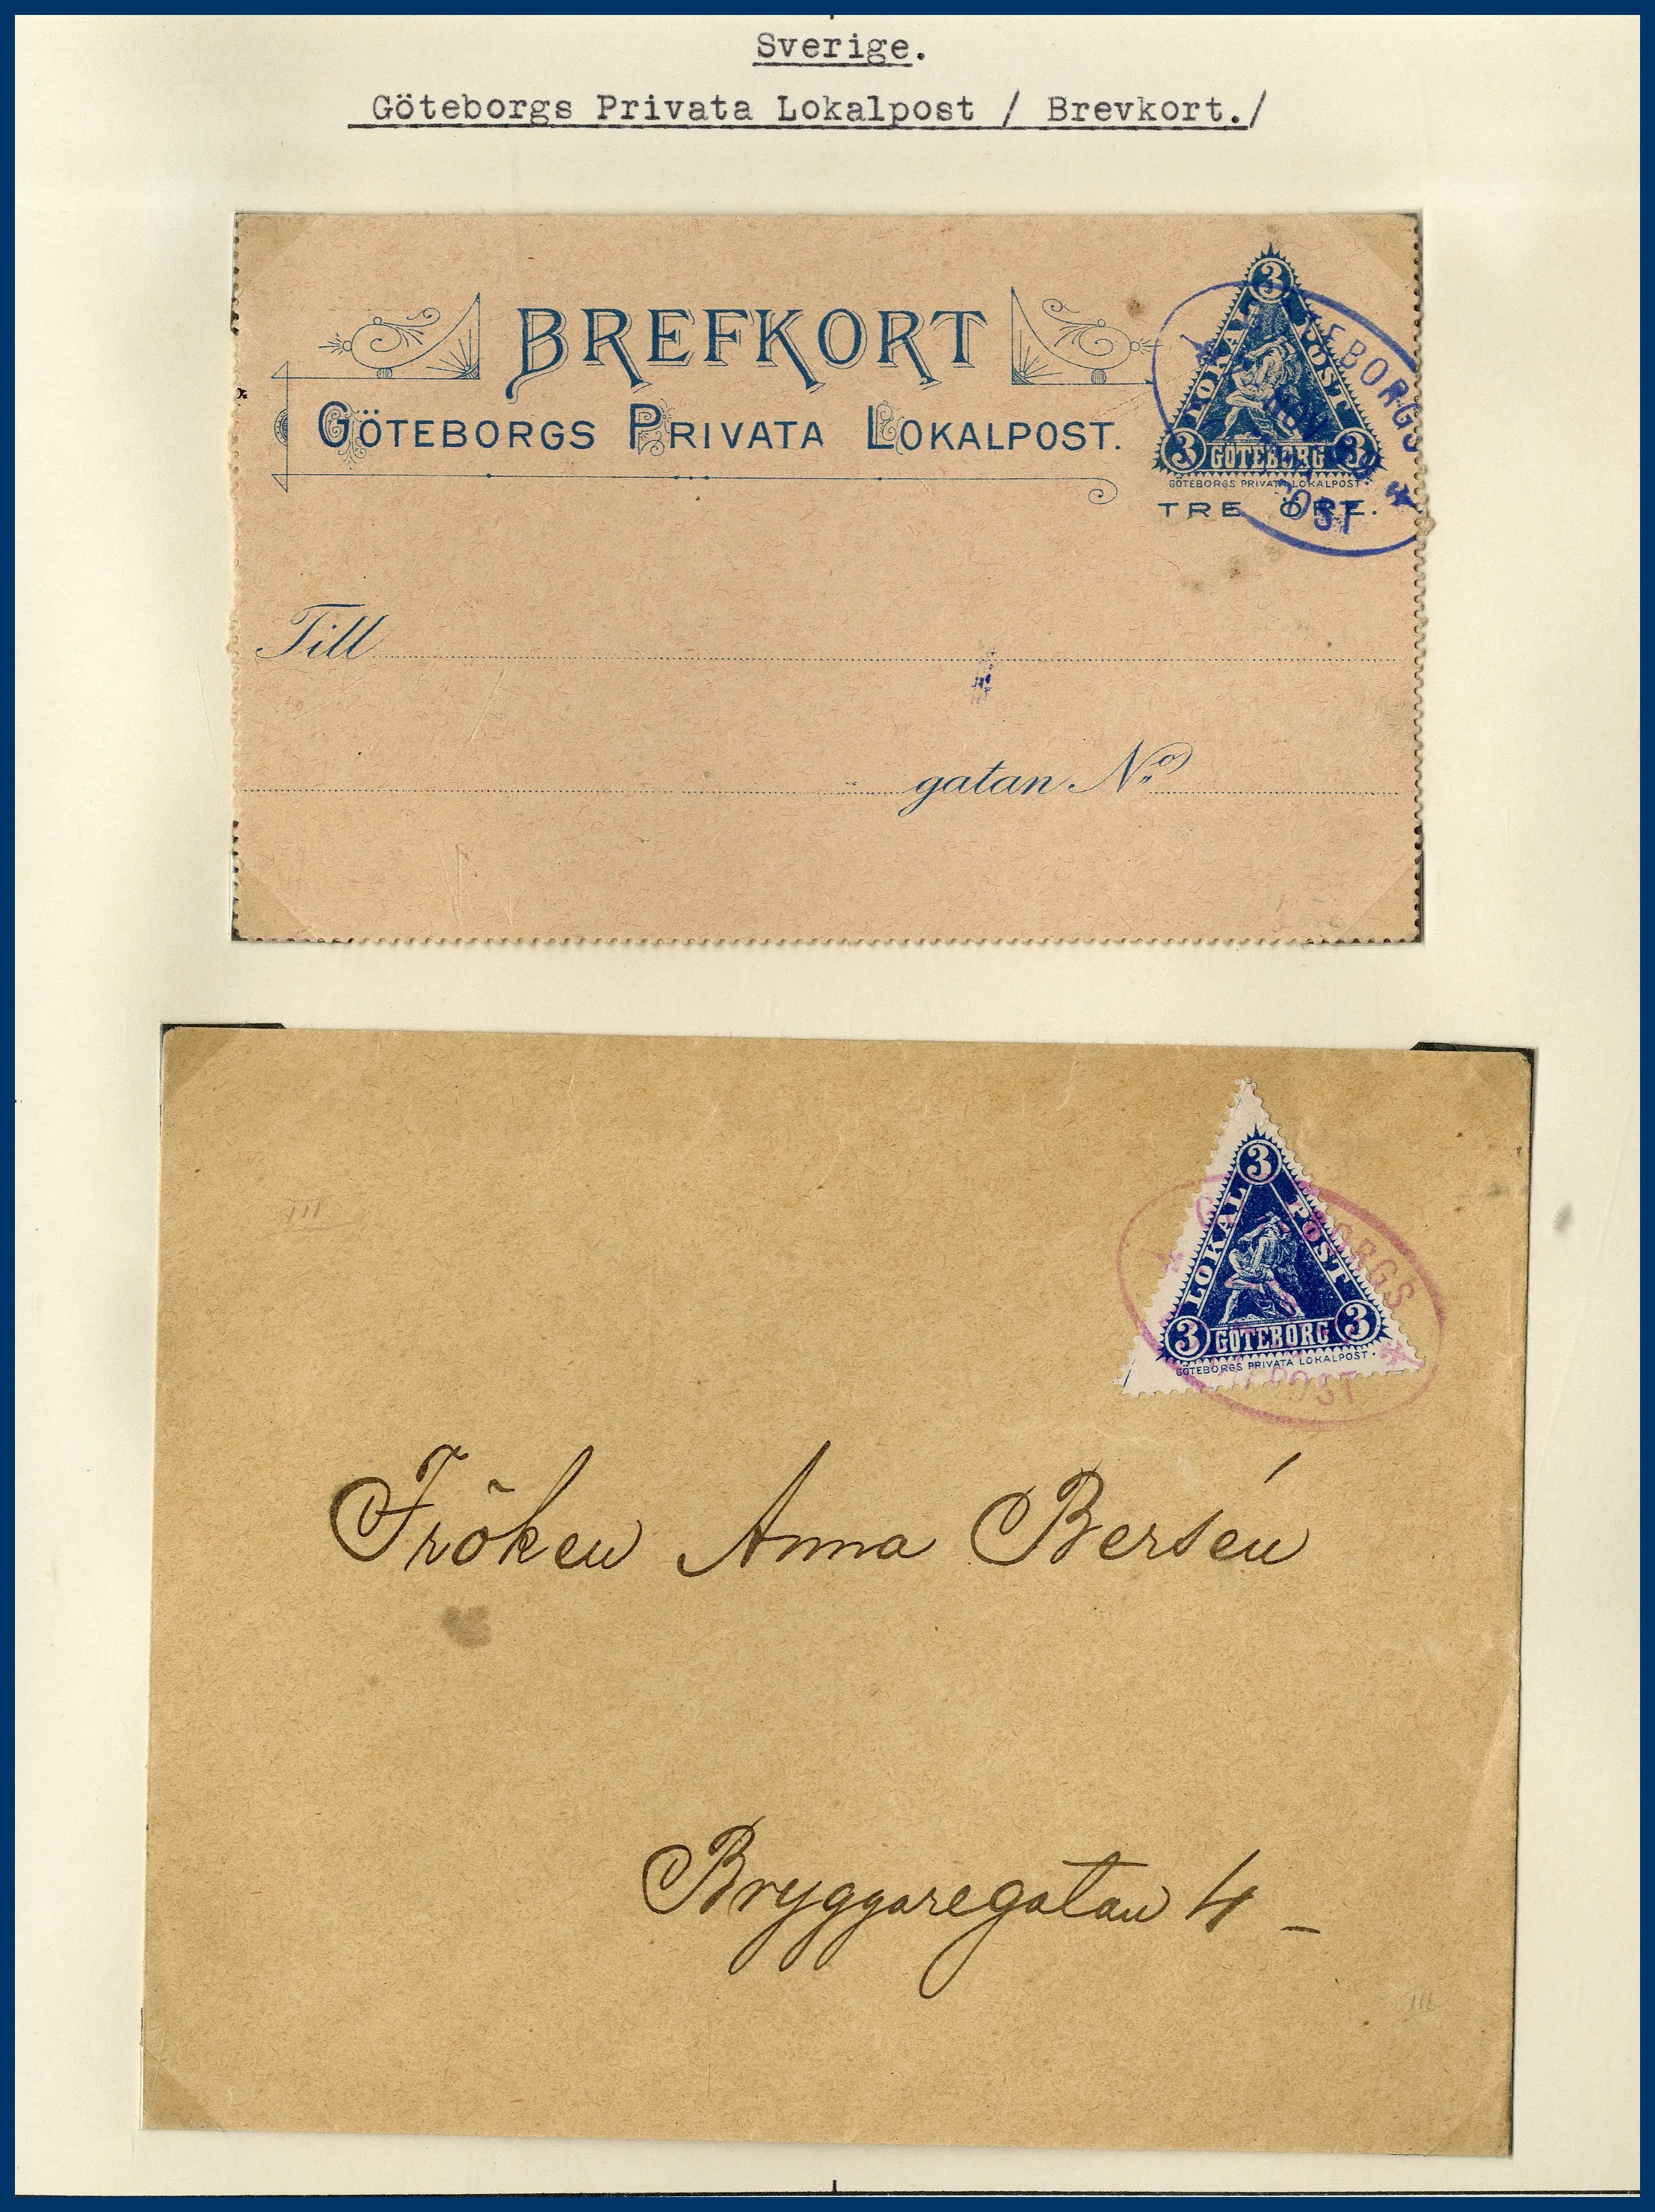 Sverige.
Göteborgs Privata Lokalpost / Brevkort./
BREFKORT
GÖTEBORGS PRIVATA LOKALPOST.
3
LOKAL POST
3 GÖTEBORG 3
GÖTEBORGS PRIVATA LOKALPOST.
TRE ÖRE.
Till
gatan No
3
LOKAL POST
3 GÖTEBORG 3
GÖTEBORGS PRIVATA LOKALPOST.
Fröken Anna Bersén
Bryggaregatan 4 –